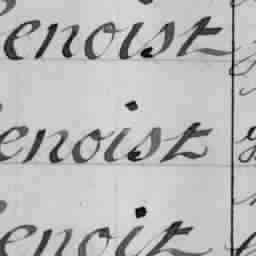 enoist
enoist
enoit